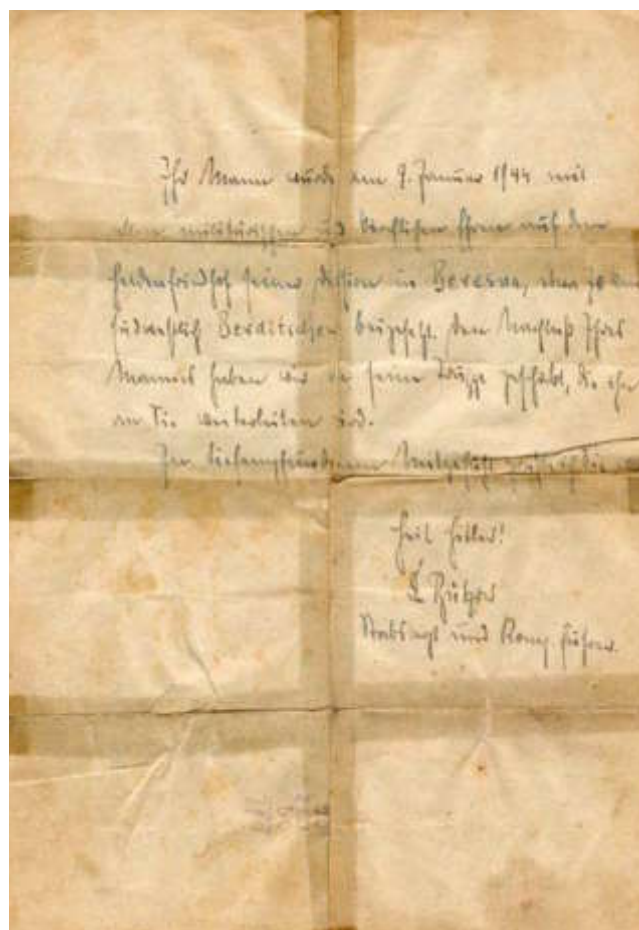 Ihr Mann wurde am 9. Januar 1944 mit
allen militärischen und kirchlichen Ehren auf dem
Heldenfriedhof seiner Division in Beresna, etwa 70 km
südwestlich Berditschew beigesetzt. Den Nachlaß Ihres
Mannes haben wir an seine Truppe geschickt, die ihn
an Sie weiterleiten wird.
In tiefempfundenem Mitgefühl grüßt Sie
Heil Hitler!
Stabsarzt und Komp. Führer.